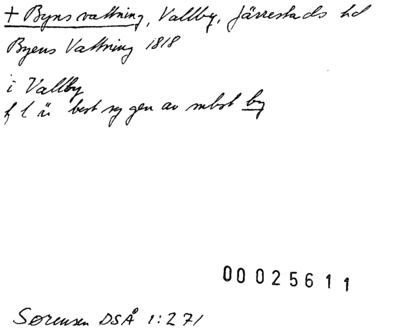 + Byns vattning, Vallby, Järrestads hd
Byens Vattning 1818
i Vallby
f l ä best sg gen av subst by
00025611
Sørensen DSÅ 1:271